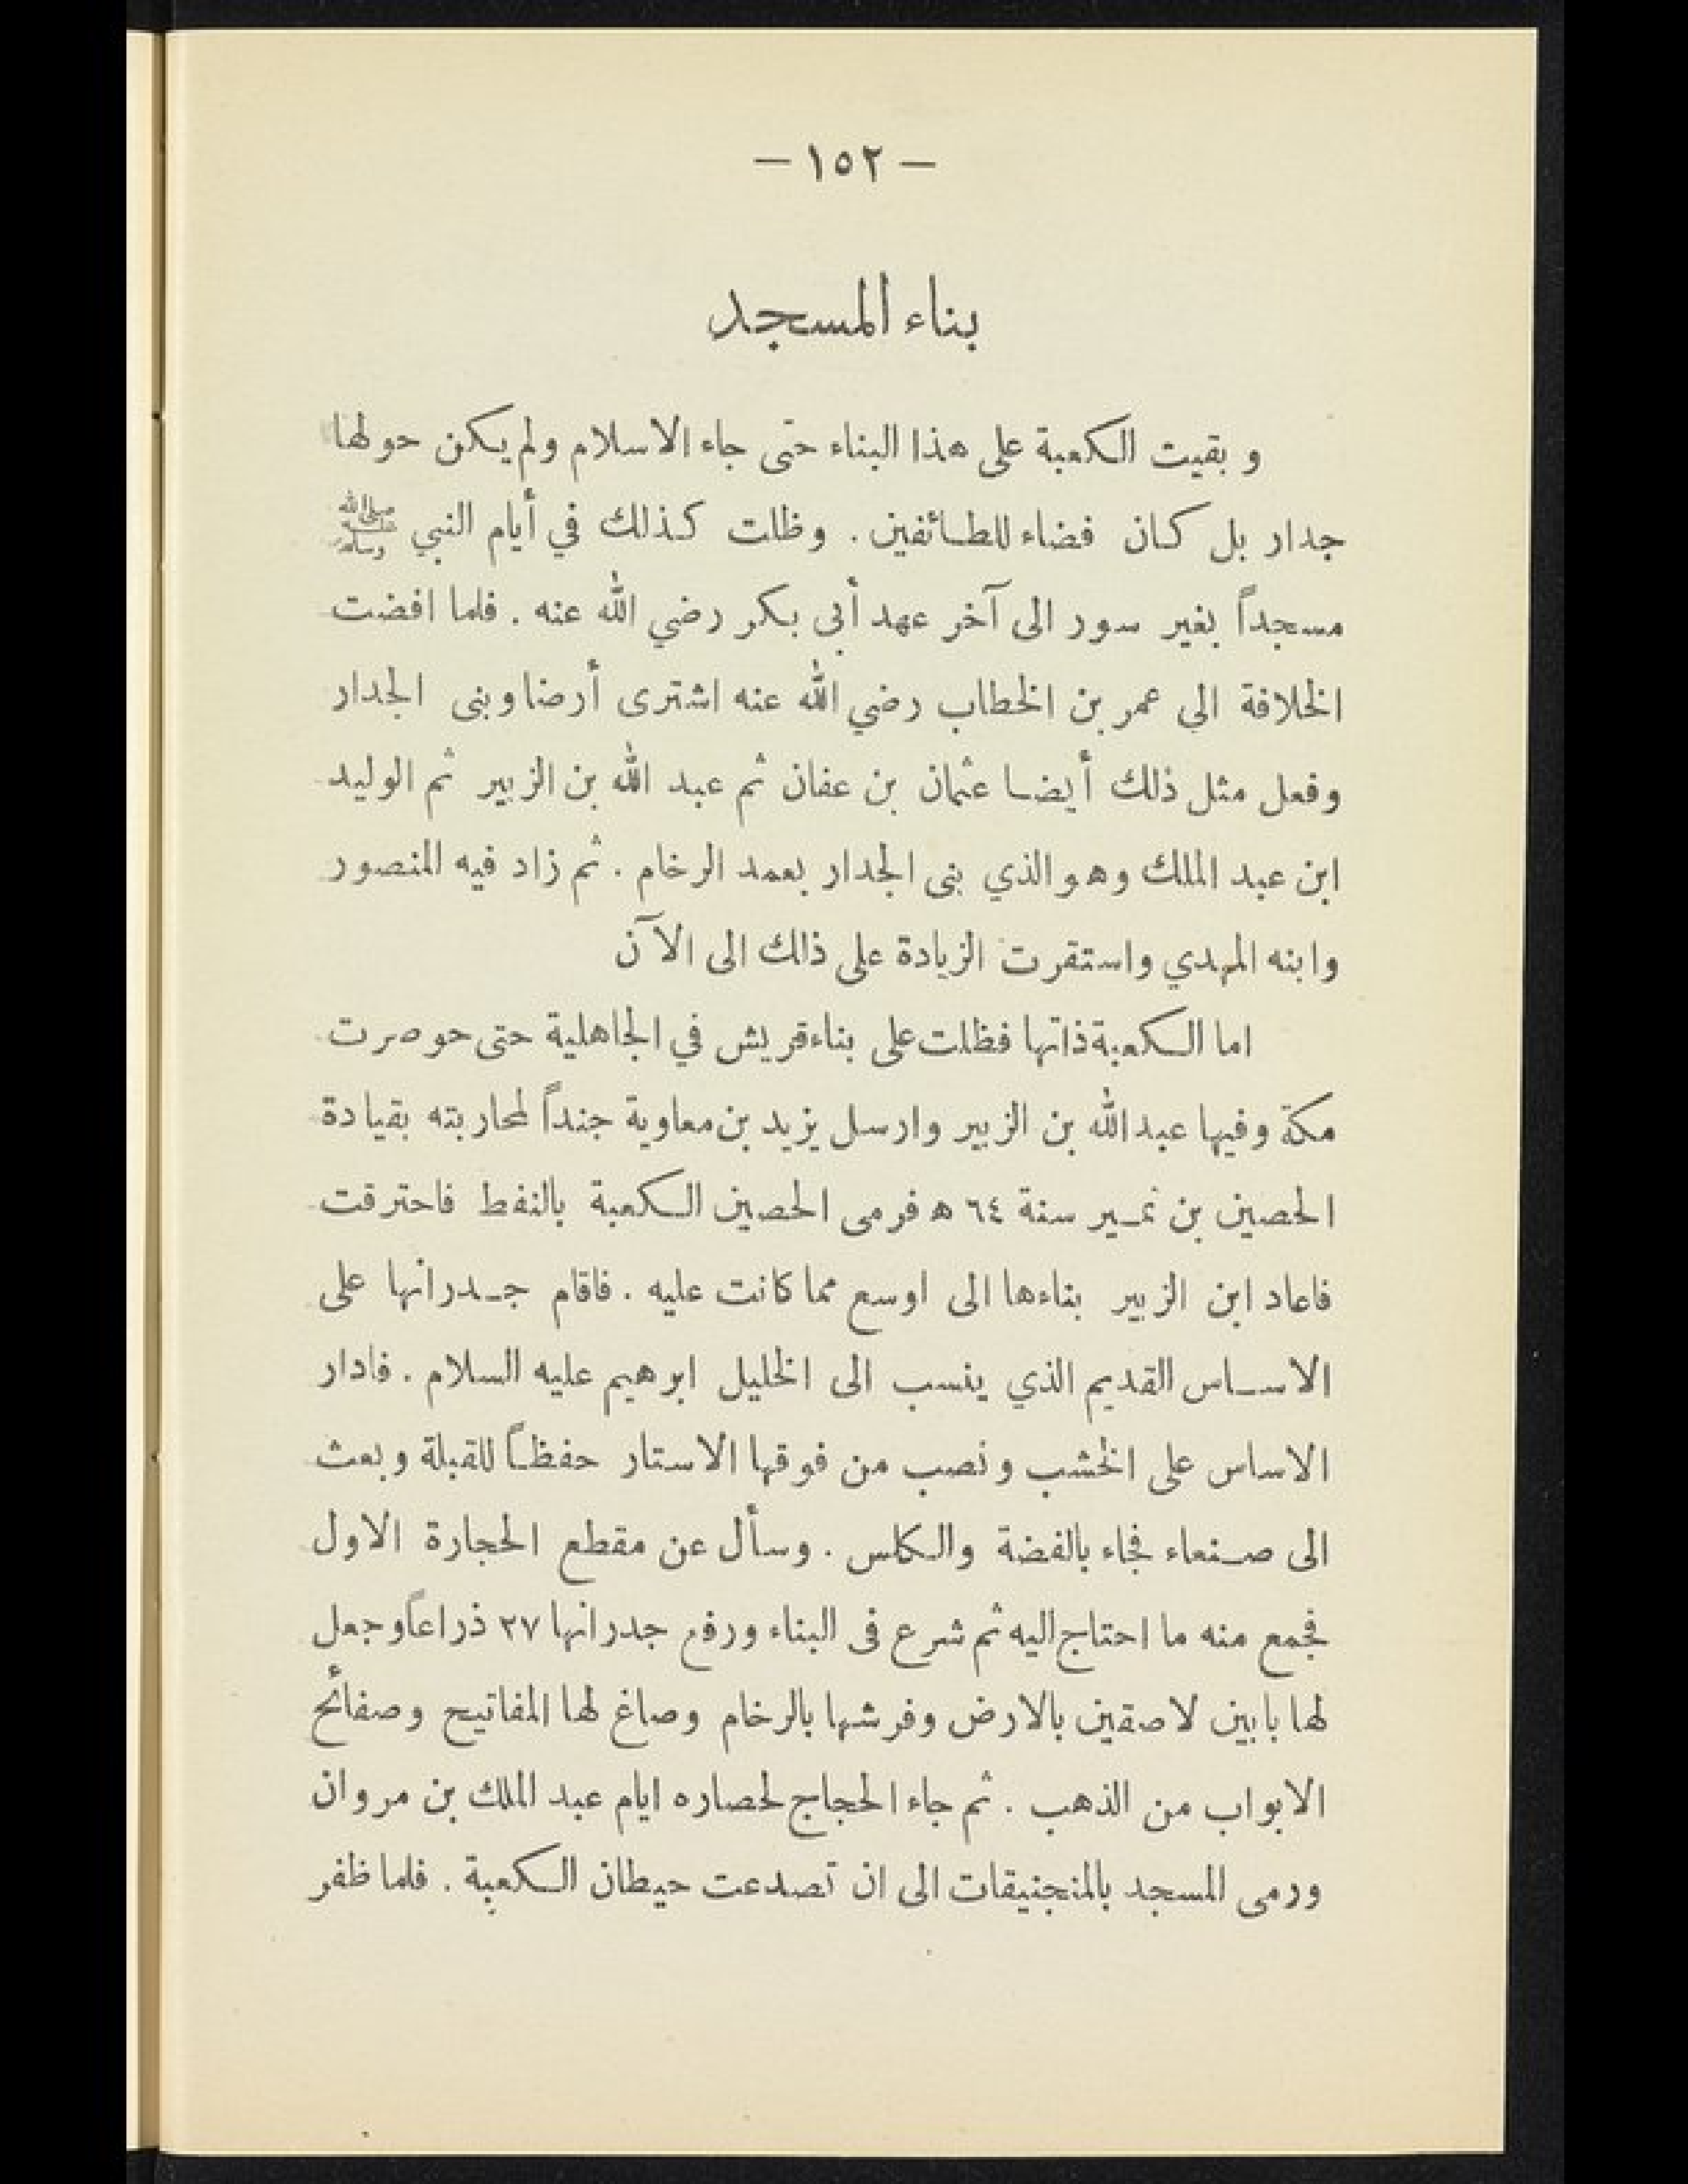 — ١٥٢ —
بناء المسجد
و بقيت الكعبة على هذا البناء حتى جاء الاسلام ولم يكن حولها
جدار بل كان فضاء للطائفين . وظلت كذلك في أيام النبي صلى الله عليه وسلم
مسجداً بغير سور الى آخر عهد أبى بكر رضي الله عنه . فلما افضت
الخلافة الى عمر بن الخطاب رضي الله عنه اشترى أرضا وبنى الجدار
وفعل مثل ذلك أيضا عثمان بن عفان ثم عبد الله بن الزبير ثم الوليد
ابن عبد الملك وهو الذي بنى الجدار بعمد الرخام . ثم زاد فيه المنصور
وابنه المهدي واستقرت الزيادة على ذالك الى الآن
اما الكعبة ذاتها فظلت على بناء قريش في الجاهلية حتى حوصرت
مكة وفيها عبد الله بن الزبير وارسل يزيد بن معاوية جنداً لمحاربته بقيادة
الحصين بن نمير سنة ٦٤ ه فرمى الحصين الكعبة بالنفط فاحترقت
فاعاد ابن الزبير بناءها الى اوسع مما كانت عليه . فاقام جدرانها على
الاساس القديم الذي ينسب الى الخليل ابرهيم عليه السلام . فادار
الاساس على الخشب ونصب من فوقها الاستار حفظاً للقبلة وبعث
الى صنعاء فجاء بالفضة والكلس . وسأل عن مقطع الحجارة الاول
فجمع منه ما احتاج اليه ثم شرع فى البناء ورفع جدرانها ٢٧ ذراعاً وجعل
لها بابين لاصقين بالارض وفرشها بالرخام وصاغ لها المفاتيح وصفائح
الابواب من الذهب . ثم جاء الحجاج لحصاره ايام عبد الملك بن مروان
ورمى المسجد بالمنجنيقات الى ان تصدعت حيطان الكعبة . فلما ظفر